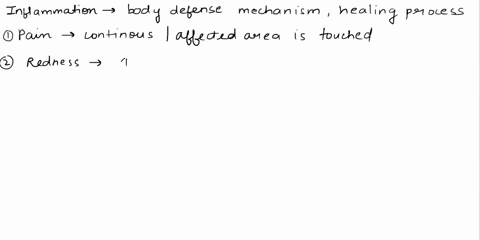 Inflammation → body defense mechanism, healing process
① Pain → continous | affected area is touched
② Redness →